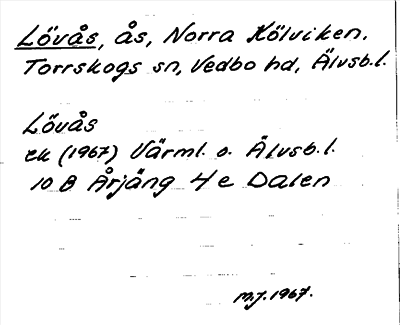 Lövås, ås, Norra Kölviken.
Torrskogs sn, Vedbo hd, Älvsb.l.
Lövås
ek (1967) Värml. o. Älvsb.l.
10 B Årjäng 4 e Dalen
M.J. 1967.